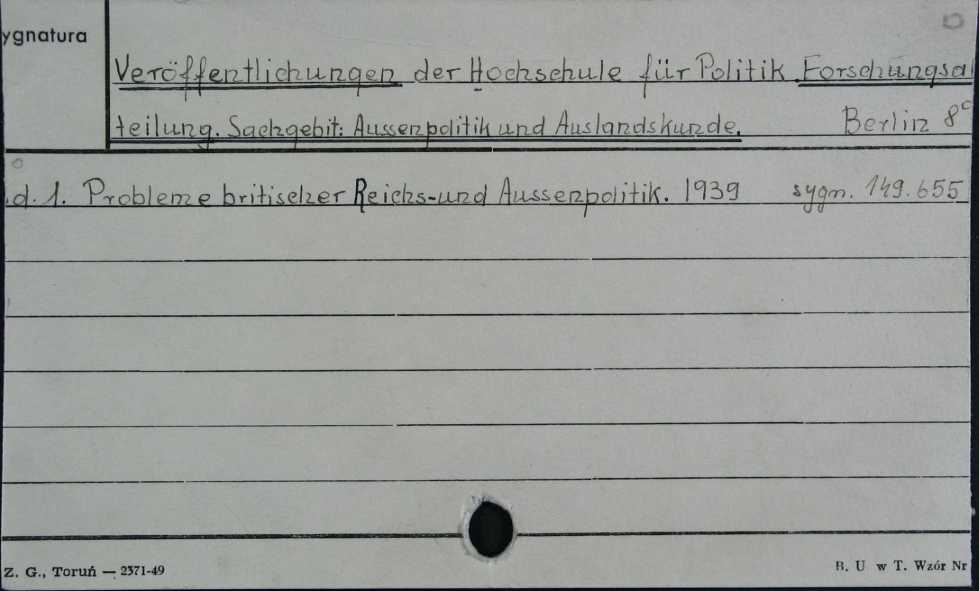 ygnatura
Veröffentlichungen der Hochschule für Politik Forschungsa
teilung. Sachgebit: Aussenpolitik und Auslandskunde. Berlin 8°
.d. 1. Probleme britischer Reichs-und Aussenpolitik. 1939 sygn. 149.655
Z. G., Toruń — 2371-49
B. U w T. Wzór Nr